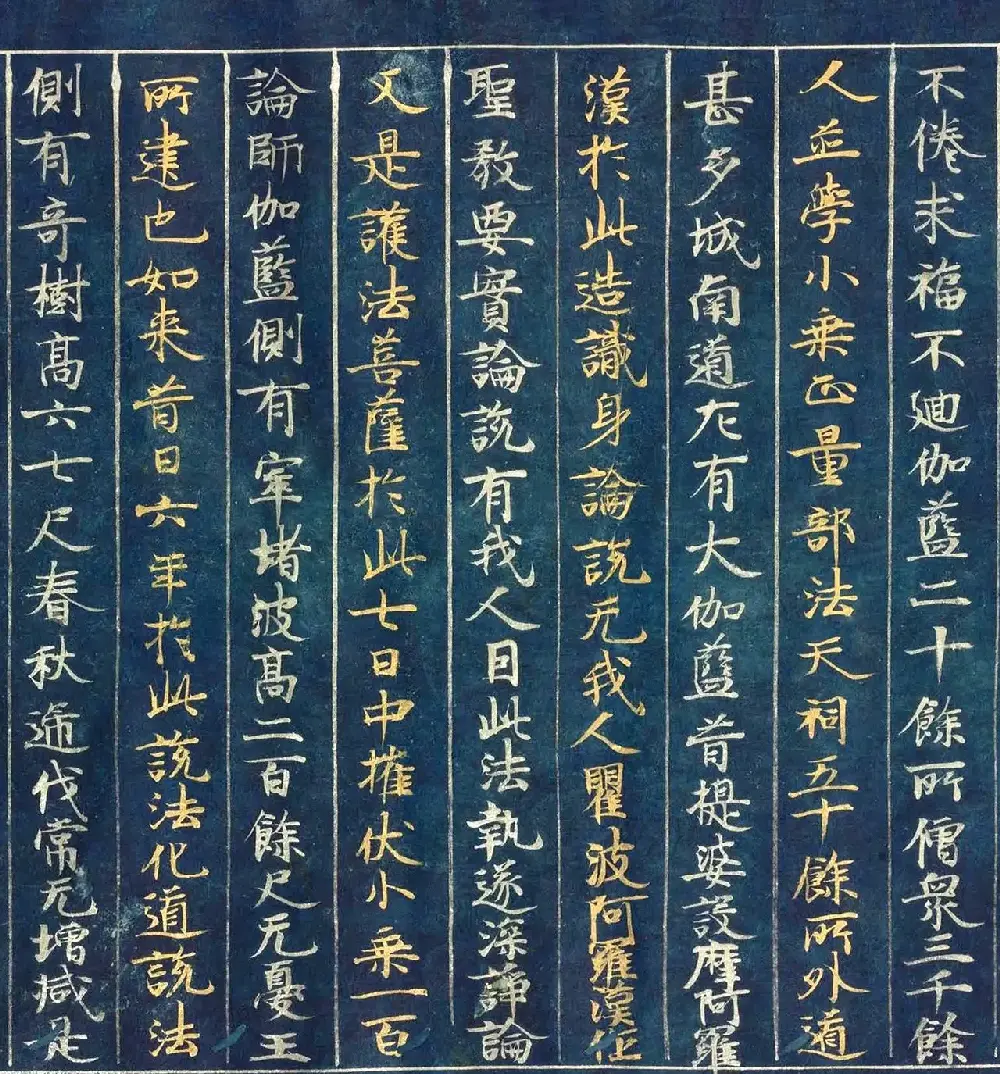 不倦求福不迴伽藍二十餘所僧衆三千餘
人並學小乗正量部法天祠五十餘所外道
甚多城南道左有大伽藍昔提婆設摩阿羅
漢於此造識身論說无我人瞿波阿羅漢作
聖教要實論說有我人曰此法執遂深諍論
又是護法菩薩於此七日中摧伏小乗一百
論師伽藍側有窣堵波高二百餘尺无憂王
所建也如来昔日六年於此說法化道說法
側有奇樹高六七尺春秋遞代常无增減是